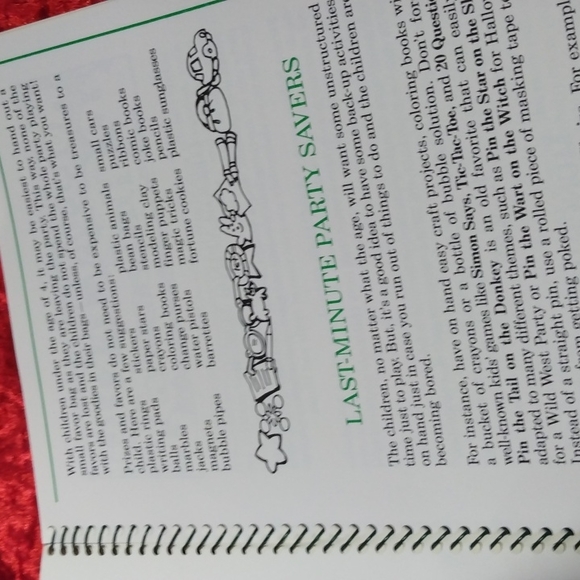 With children under the age of 4, it may be easiest to hand out a
small favor bag as they are leaving the party. This way, none of the
favors are lost and the children do not spend the whole party playing
with the goodies in their bags—unless, of course, that's what you want!
Prizes and favors do not need to be expensive to be treasures to a
child. Here are a few suggestions:
plastic rings stickers plastic animals small cars
writing pads paper stars bean bags puzzles
balls crayons stencils ribbons
marbles coloring books modeling clay comic books
jacks change purses finger puppets joke books
magnets water pistols magic tricks pencils
bubble pipes barrettes fortune cookies plastic sunglasses
LAST-MINUTE PARTY SAVERS
The children, no matter what the age, will want some unstructured
time just to play. But, it's a good idea to have some back-up activities
on hand just in case you run out of things to do and the children are
becoming bored.
For instance, have on hand easy craft projects, coloring books wi
a bucket of crayons or a bottle of bubble solution. Don't for
well-known kids' games like Simon Says, Tic-Tac-Toe, and 20 Questio
Pin the Tail on the Donkey is an old favorite that can easily
adapted to many different themes, such as Pin the Star on the Sh
for a Wild West Party or Pin the Wart on the Witch for Hallo
Instead of a straight pin, use a rolled piece of masking tape to
from getting poked.
For exampl